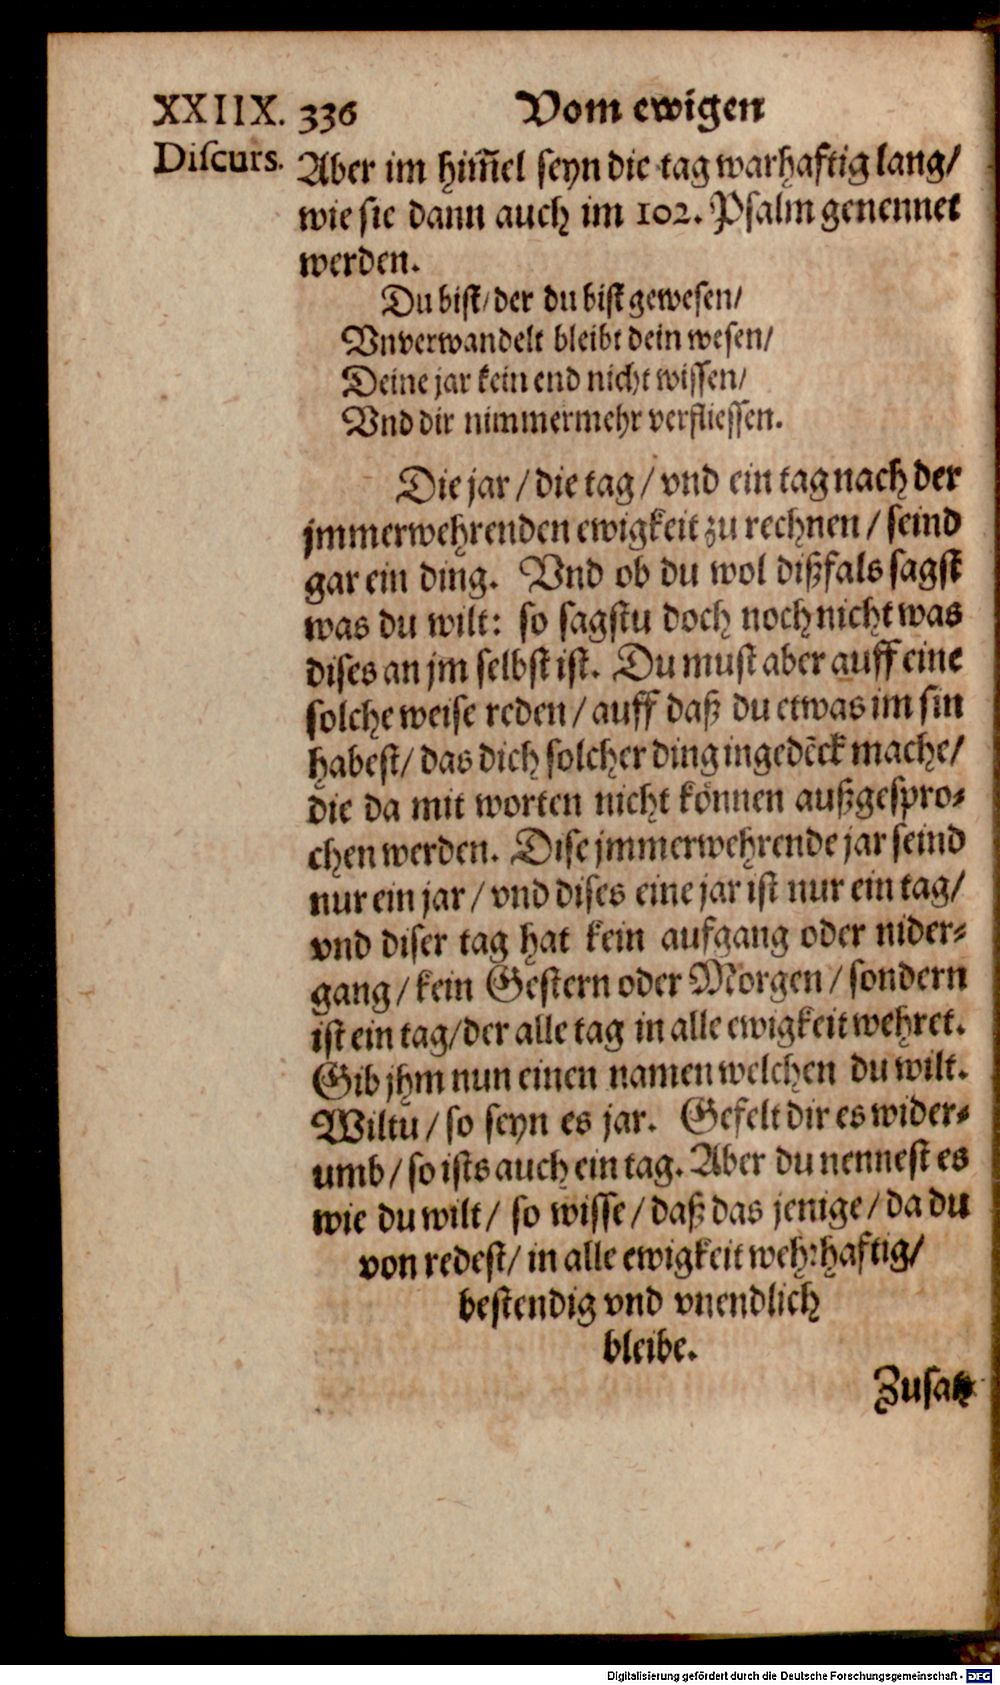 XXIIX. 336 Vom ewigen
Discurs.
Aber im him̃el seyn die tag warhaftig lang/
wie sie dann auch im 102. Psalm genennet
werden.
Du bist/ der du bist gewesen/
Vnverwandelt bleibt dein wesen/
Deine jar kein end nicht wissen/
Vnd dir nimmermehr verfliessen.
Die jar / die tag / vnd ein tag nach der
jmmerwehrenden ewigkeit zu rechnen / seind
gar ein ding. Vnd ob du wol dißfals sagst
was du wilt: so sagstu doch noch nicht was
dises an jm selbst ist. Du must aber auff eine
solche weise reden / auff daß du etwas im sin
habest/ das dich solcher ding ingedẽck mache/
die da mit worten nicht können außgespro⸗
chen werden. Dise jmmerwehrende jar seind
nur ein jar / vnd dises eine jar ist nur ein tag/
vnd diser tag hat kein aufgang oder nider⸗
gang / kein Gestern oder Morgen / sondern
ist ein tag/ der alle tag in alle ewigkeit wehret.
Gib jhm nun einen namen welchen du wilt.
Wiltu / so seyn es jar. Gefelt dir es wider⸗
umb / so ists auch ein tag. Aber du nennest es
wie du wilt / so wisse / daß das jenige / da du
von redest/ in alle ewigkeit wehrhaftig/
bestendig vnd vnendlich
bleibe.
Zusatz
Digitalisierung gefördert durch die Deutsche Forschungsgemeinschaft - DFG